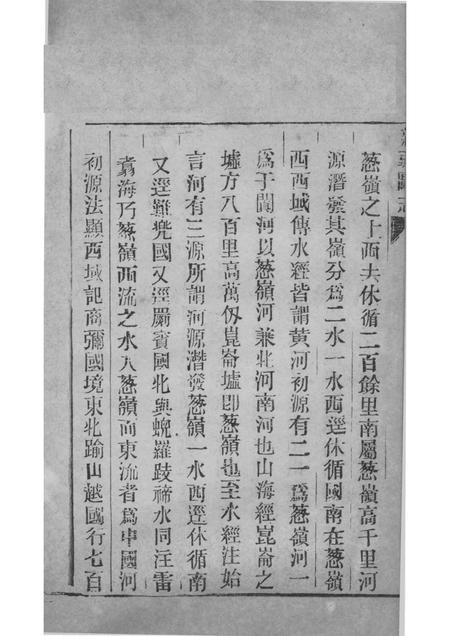 葱嶺之上西去休循二百餘里南屬葱嶺高千里河
源潛發其嶺分爲二水一水西逕休循國南在葱嶺
西西域傳水經皆謂黃河初源有二一爲葱嶺河一
爲于闐河以葱嶺河兼北河南河也山海經崑崙之
墟方八百里高萬仭崑崙墟即葱嶺也至水經注始
言河有三源所謂河源潛發葱嶺一水西逕休循南
又逕難兜國又逕罽賓國北與蜺羅跂禘水同注雷
翥海乃葱嶺西流之水入葱嶺而東流者爲中國河
初源法顯西域記商彌國境東北踰山越國行七百